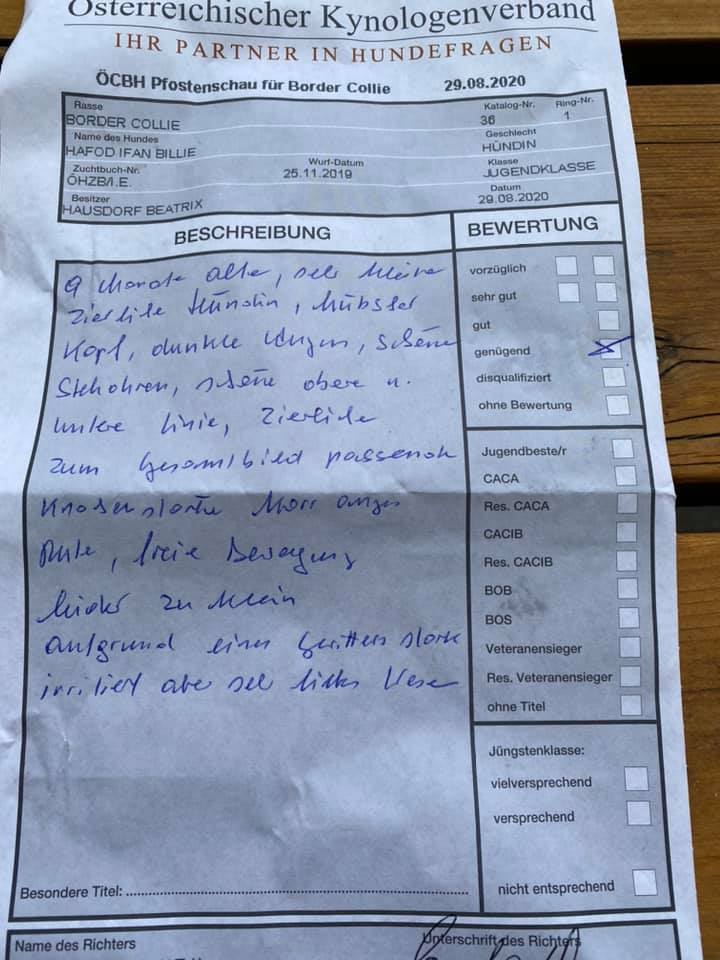 Österreichischer Kynologenverband
IHR PARTNER IN HUNDEFRAGEN
ÖCBH Pfostenschau für Border Collie 29.08.2020
Rasse Katalog-Nr. Ring-Nr.
BORDER COLLIE 36 1
Name des Hundes Geschlecht
HAFOD IFAN BILLIE HÜNDIN
Zuchtbuch-Nr. Wurf-Datum Klasse
ÖHZB/I.E. 25.11.2019 JUGENDKLASSE
Besitzer Datum
HAUSDORF BEATRIX 29.08.2020
BESCHREIBUNG
9 Monate alte, sehr kleine
zierliche Hündin, hübscher
Kopf, dunkle Augen, schöne
Stehohren, schöne obere u.
untere Linie, zierliche
zum Gesamtbild passende
Knochenstärke
Rute, freie Bewegung
leider zu klein
aufgrund eines Gewitters stark
irritiert aber sehr liebes Wesen
Besondere Titel:
BEWERTUNG
vorzüglich
sehr gut
gut
genügend
disqualifiziert
ohne Bewertung
Jugendbeste/r
CACA
Res. CACA
CACIB
Res. CACIB
BOB
BOS
Veteranensieger
Res. Veteranensieger
ohne Titel
Jüngstenklasse:
vielversprechend
versprechend
nicht entsprechend
Name des Richters
Unterschrift des Richters